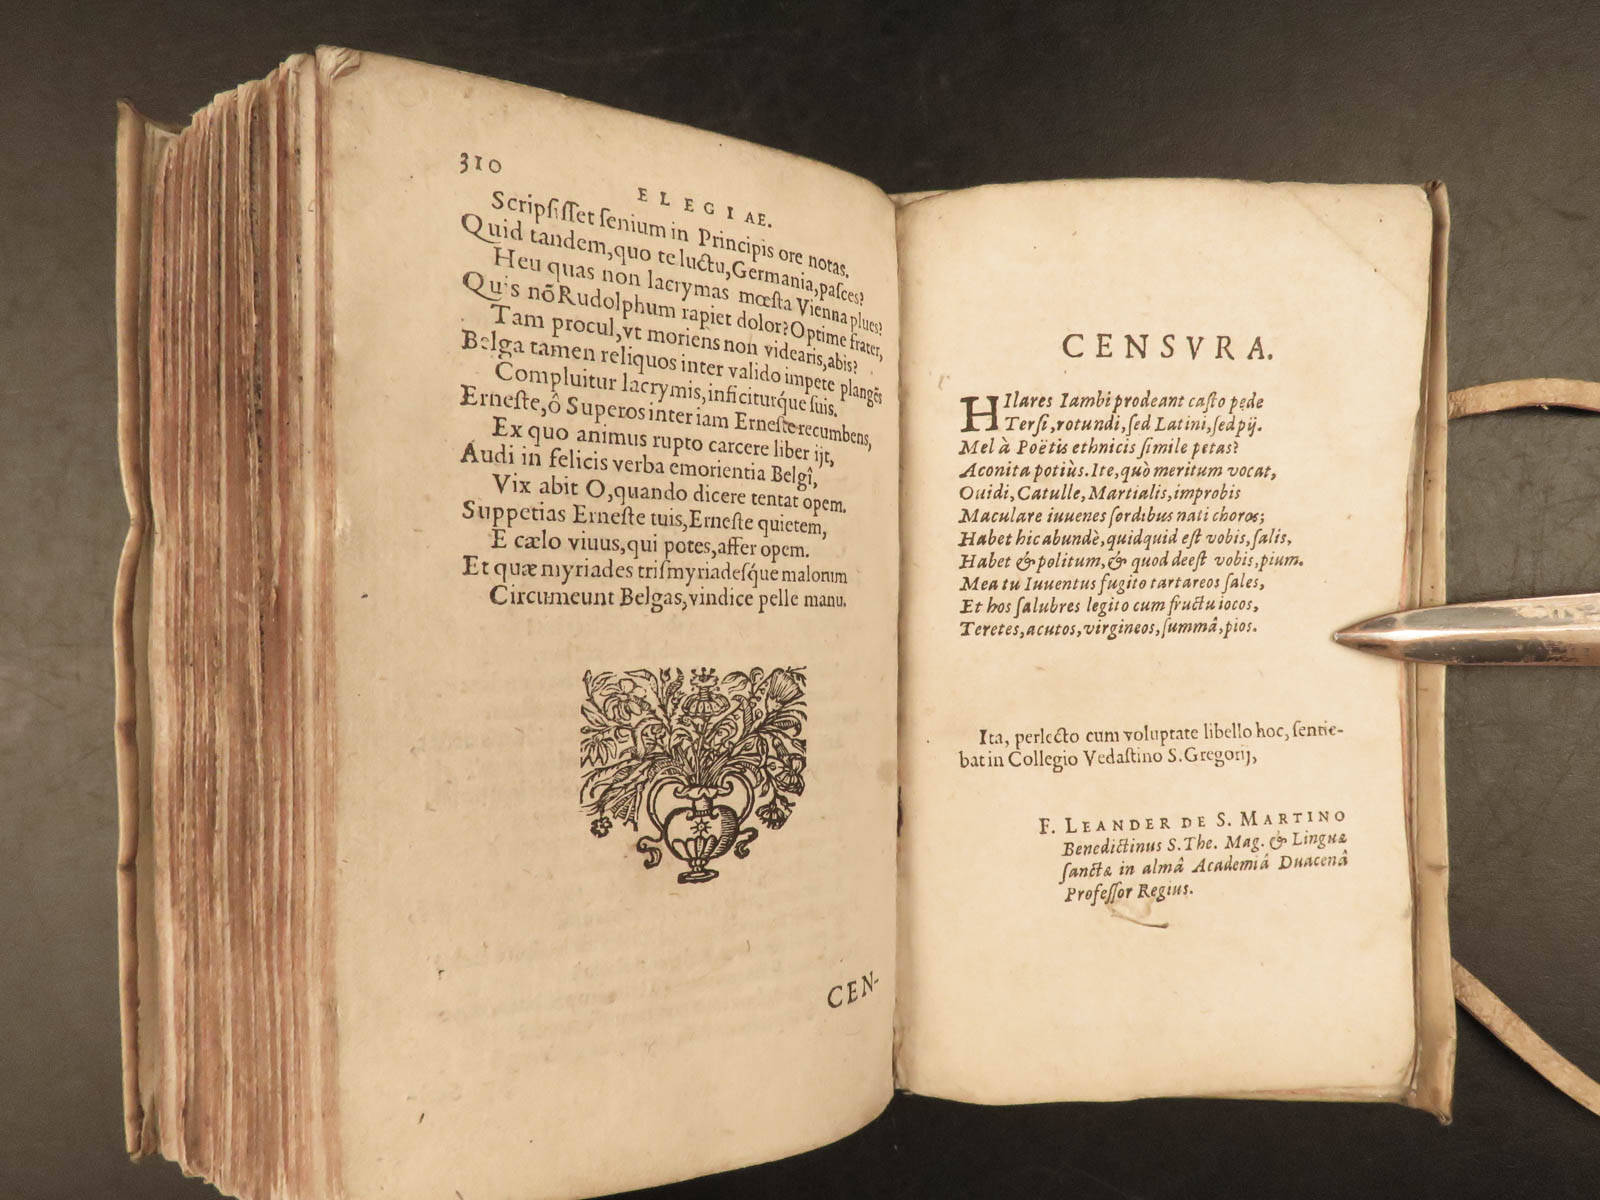 310
ELEGIAE.
Scripſiſſet ſenium in Principis ore notas.
Quid tandem, quo te luctu, Germania, paſces?
Heu quas non lacrymas mœſta Vienna plues?
Quis nõ Rudolphum rapiet dolor? Optime frater,
Tam procul, vt moriens non videaris, abis?
Belga tamen reliquos inter valido impete plangẽs
Compluitur lacrymis, inficiturq́ue ſuis.
Erneſte, ô Superos inter iam Erneſte recumbens,
Ex quo animus rupto carcere liber ijt,
Audi in felicis verba emorientia Belgî,
Vix abit O, quando dicere tentat opem.
Suppetias Erneſte tuis, Erneſte quietem,
E cælo viuus, qui potes, affer opem.
Et quæ myriades triſmyriadeſq́ue malorum
Circumeunt Belgas, vindice pelle manu.
CEN-
CENSVRA.
HIlares Iambi prodeant caſto pede
Terſi, rotundi, ſed Latini, ſed pij.
Mel à Poëtis ethnicis ſimile petas?
Aconita potiùs. Ite, quò meritum vocat,
Ouidi, Catulle, Martialis, improbis
Maculare iuuenes ſordibus nati choros;
Habet hic abundè, quidquid eſt vobis, ſalis,
Habet & politum, & quod deeſt vobis, pium.
Mea tu Iuuentus fugito tartareos ſales,
Et hos ſalubres legito cum fructu iocos,
Teretes, acutos, virgineos, ſummâ, pios.
Ita, perlecto cum voluptate libello hoc, ſentie-
bat in Collegio Vedaſtino S. Gregorij,
F. LEANDER DE S. MARTINO
Benedictinus S. The. Mag. & Linguæ
ſanctæ in almâ Academiâ Duacenâ
Profeſſor Regius.